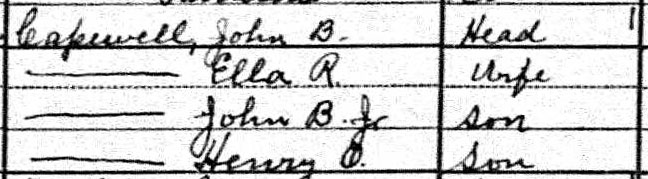 Capewell, John B. Head 1
—— Ella R. Wife
—— John B. Jr Son
—— Henry C. Son